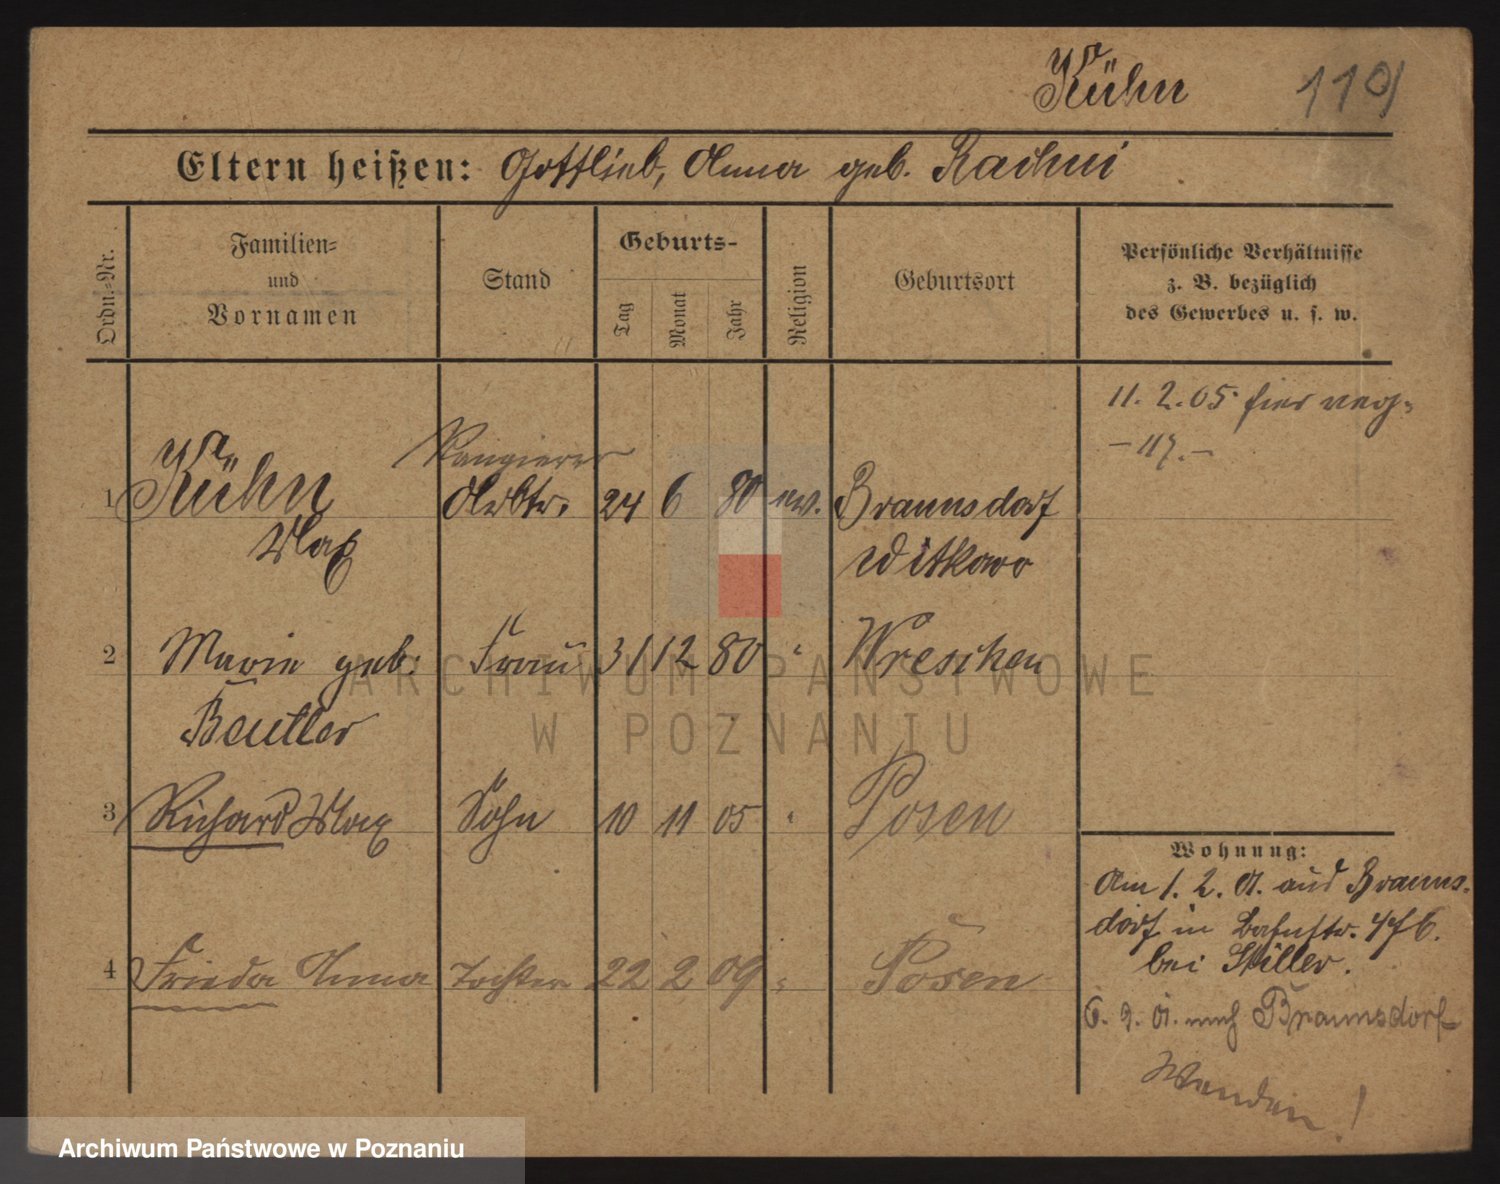 Kühn 110
Eltern heißen: Gottlieb, Anna geb. Rachui
Ordn.-Nr.
Familien-
und
Vornamen
Stand
Geburts-
Tag
Monat
Jahr
Religion
Geburtsort
Persönliche Verhältnisse
z. B. bezüglich
des Gewerbes u. s. w.
11. 2. 05 hier
Rangierer
1 Kühn Arbtr. 24 6 80 ev. Braunsdorf
Max Witkowo
2 Marie geb. Frau 31 12 80 " Wreschen
Beutler
3 Richard Max Sohn 10 11 05 " Posen
4 Frieda Anna Tochter 22 2 09 " Posen
Wohnung:
Am 1. 2. 01. aus Brauns-
dorf in Bahnstr.
bei Stiller.
6. 9. 01. nach Braunsdorf
Wenden!
ARCHIWUM PAŃSTWOWE
W POZNANIU
Archiwum Państwowe w Poznaniu